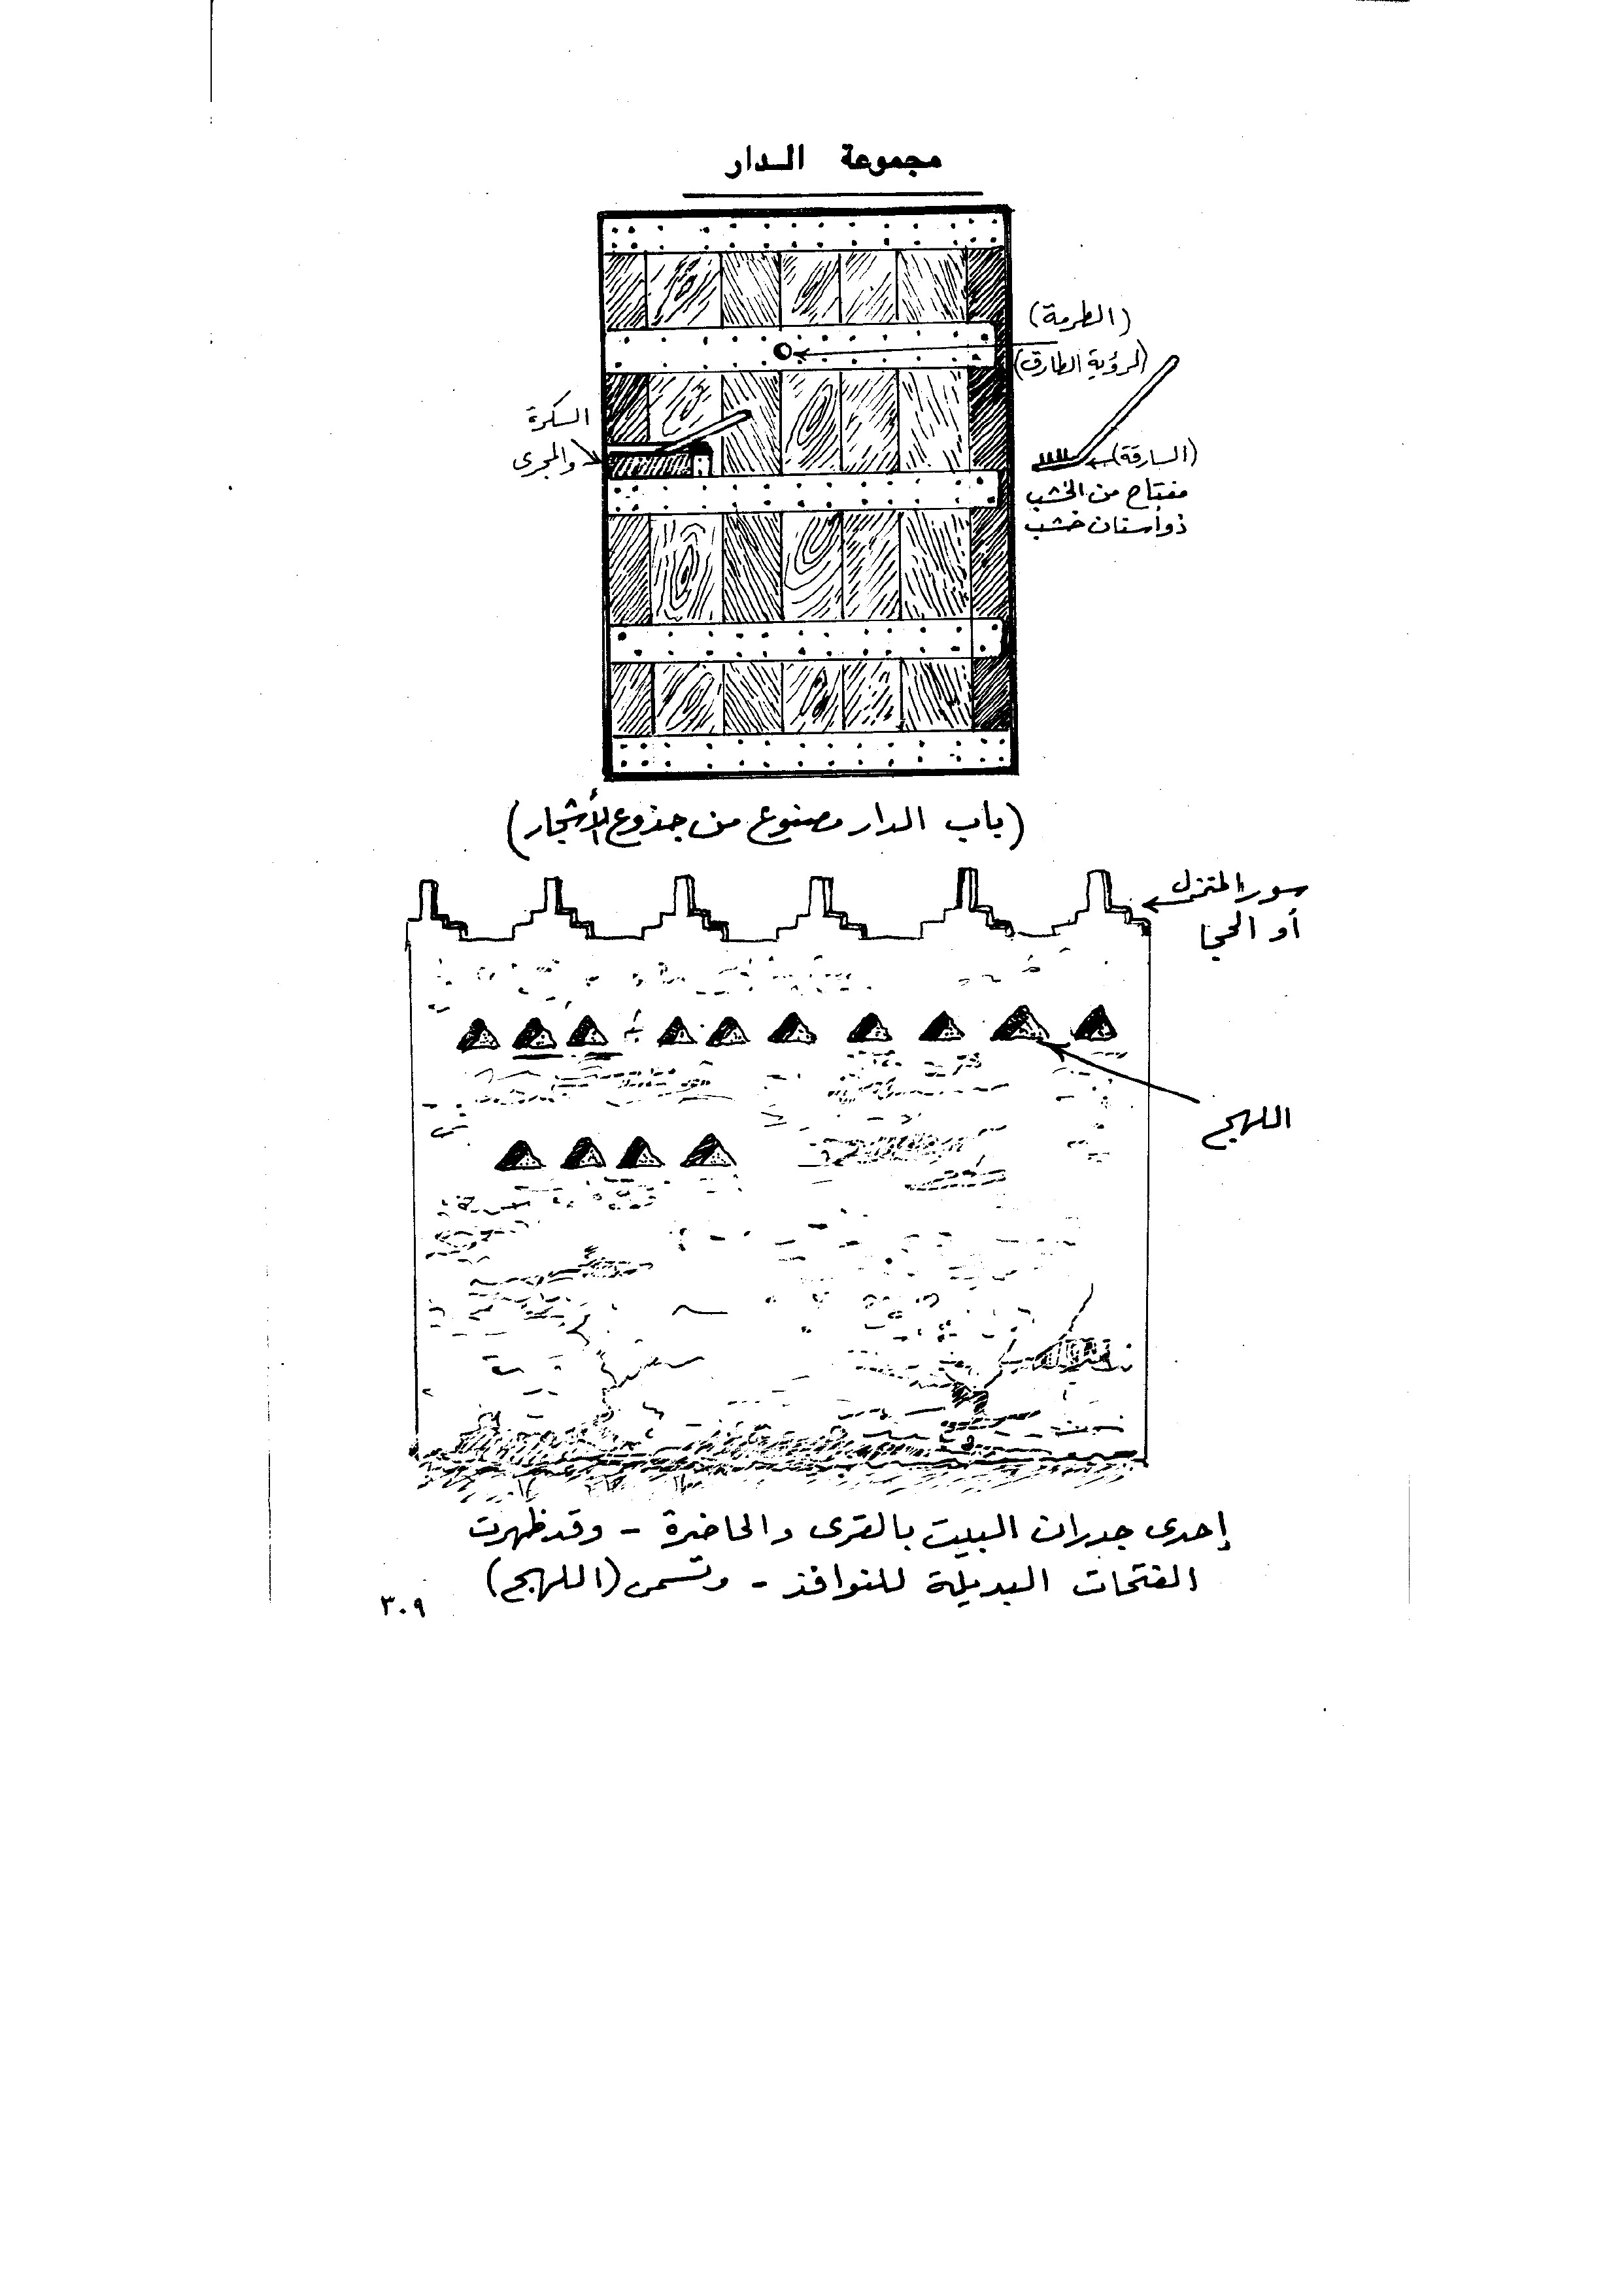 مجموعة الدار
(الطرمة)
(لرؤية الطارق)
السكرة
والمجرى
(السارقة)
مفتاح من الخشب
ذو أسنان خشب
(باب الدار مصنوع من جذوع الأشجار)
سور المنزل
أو الحجا
اللهج
إحدى جدران البيت بالقرى والحاضرة - وقد ظهرت
الفتحات البديلة للنوافذ - وتسمى (اللهج)
٣٠٩